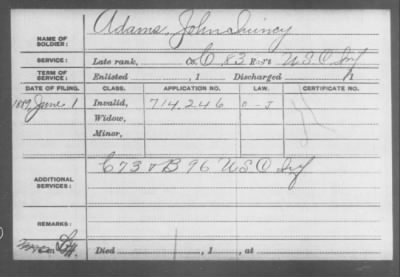 Adams, John Quincy
NAME OF SOLDIER:
SERVICE: Late rank, Co. C, 83 Reg't U S C Inf
TERM OF SERVICE: Enlisted , 1 Discharged , 1
DATE OF FILING. CLASS. APPLICATION NO. LAW. CERTIFICATE NO.
1889, June 1 Invalid, 714,246 J
Widow,
Minor,
C 73 & B 96 U S C Inf
ADDITIONAL SERVICES:
REMARKS:
Died , 1 , at